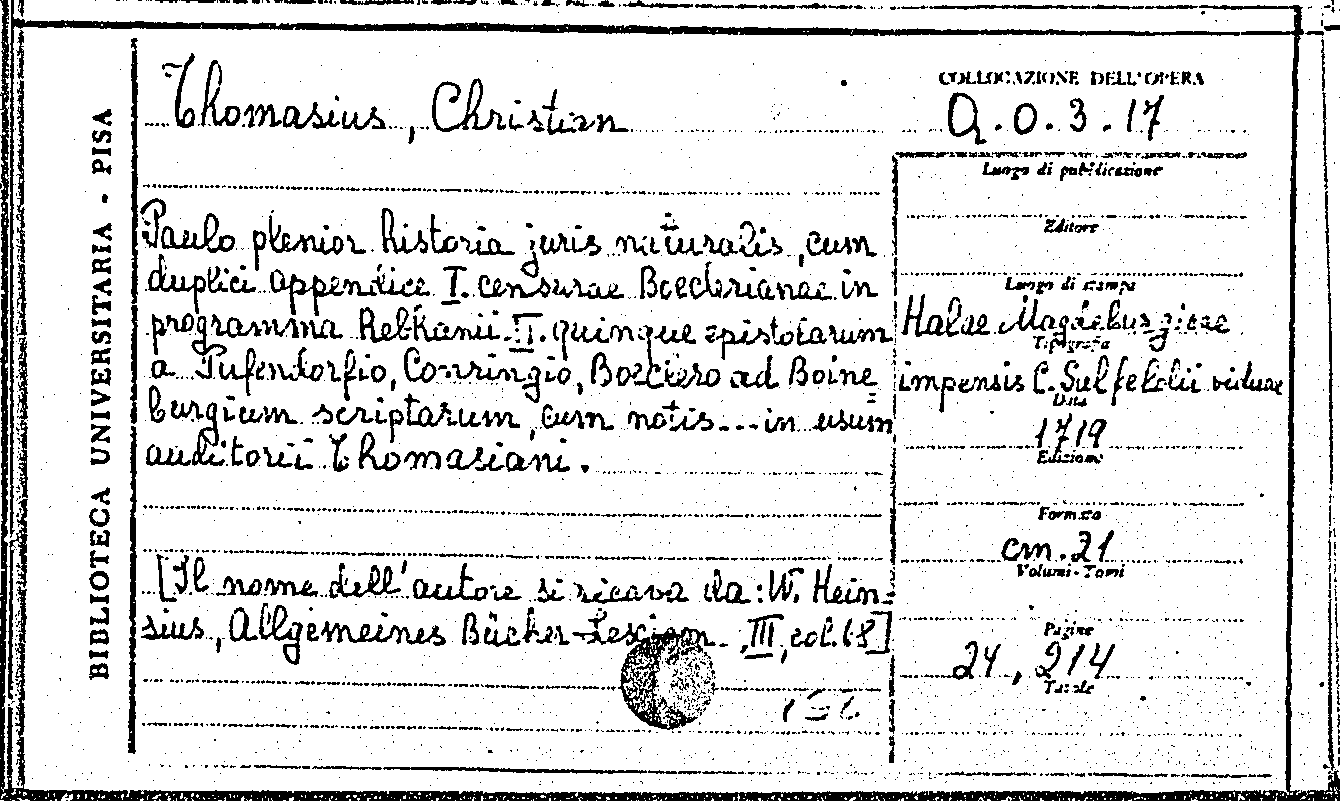 BIBLIOTECA UNIVERSITARIA - PISA
Thomasius, Christian
COLLOCAZIONE DELL'OPERA
Q.O.3.17
Paulo plenior historia juris naturalis, cum
duplici appendice I. censurae Boeclerianae in
programma Rebhanii. II. quinque epistolarum
a Pufendorfio, Conringio, Boeclero ad Boine=
burgium scriptarum, cum notis... in usum
auditorii Thomasiani.
[Il nome dell'autore si ricava da: W. Hein=
sius, Allgemeines Bücher-Lexicon. III, col. 68]
Luogo di pubblicazione
Editore
Luogo di stampa
Halae Magdeburgicae
Tipografia
impensis C. Salfeldii viduae
Data
1719
Edizione
Formato
cm. 21
Volumi-Tomi
Pagine
24, 214
Tavole